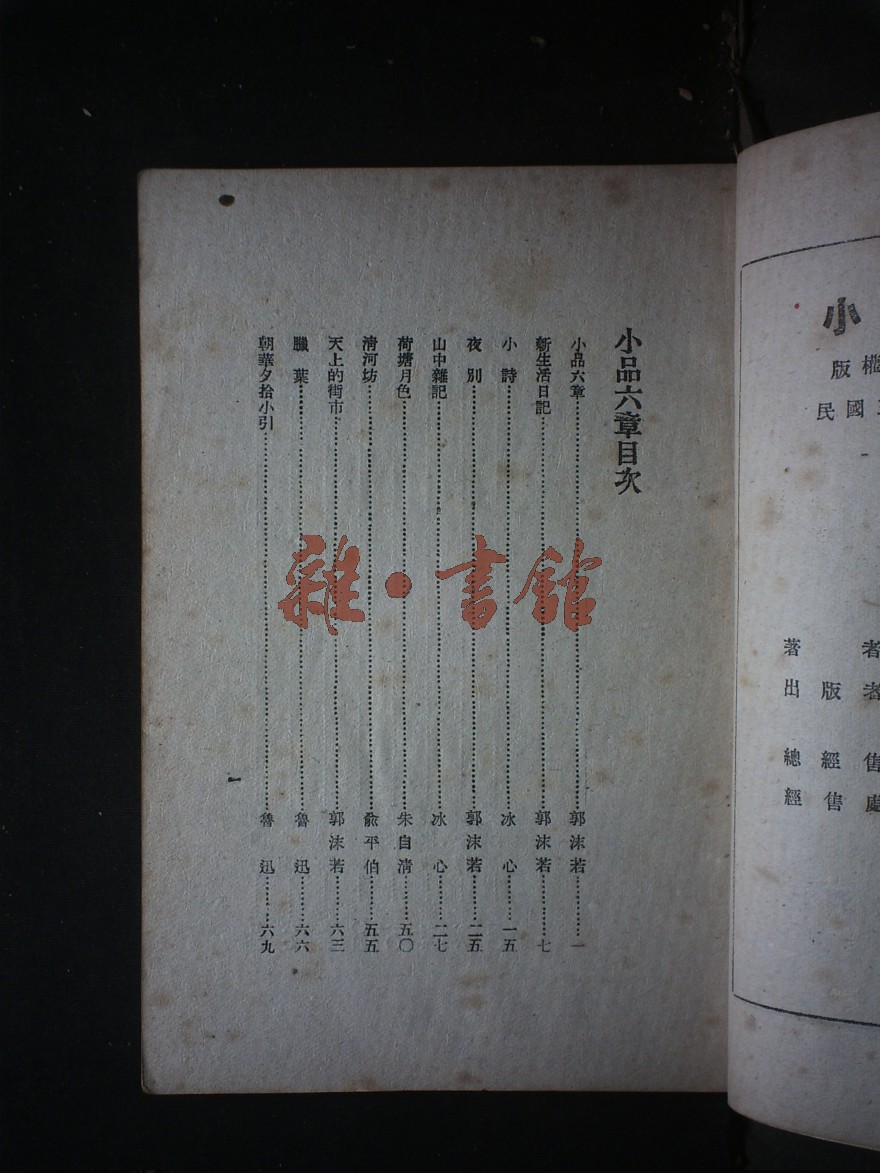 小品六章目次
小品六章…………郭沫若…………一
新生活日記…………郭沫若…………七
小詩…………冰心…………一五
夜別…………郭沫若…………二五
山中雜記…………冰心…………二七
荷塘月色…………朱自清…………五〇
清河坊…………俞平伯…………五五
天上的街市…………郭沫若…………六三
臘葉…………魯迅…………六六
朝華夕拾小引…………魯迅…………六九
一
雜·書館
小
版權
民國
著者
出版者
總經售
經售處